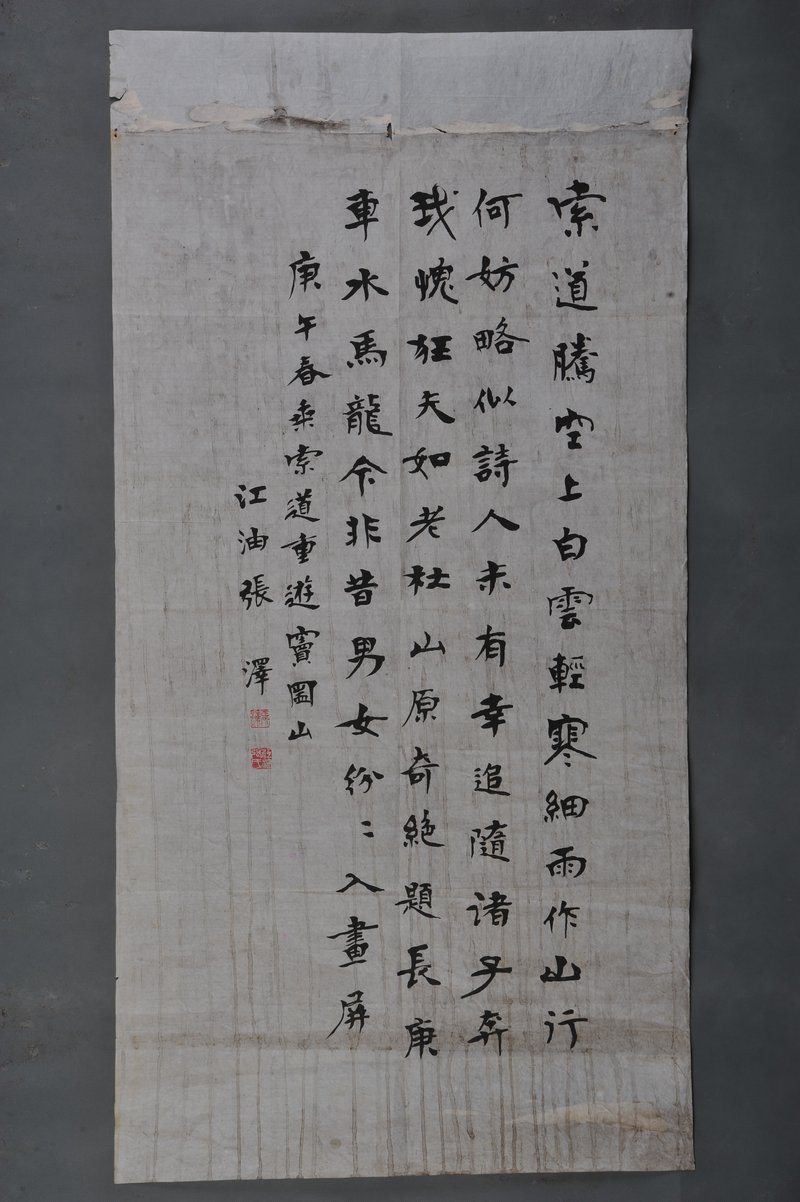 索道騰空上白雲輕寒細雨作山行
何妨略似詩人未有幸追隨諸子奔
我愧狂夫如老杜山原奇絶題長庚
車水馬龍今非昔男女紛〻入畫屏
庚午春乘索道重遊竇圌山
江油張澤